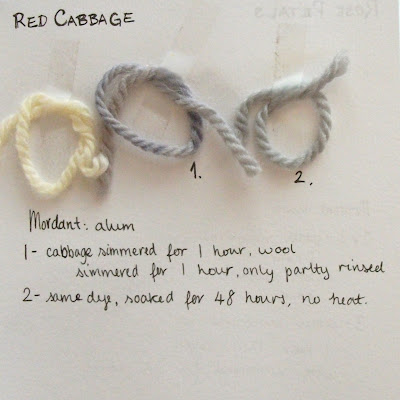 RED CABBAGE
1.
2.
Mordant: alum
1- cabbage simmered for 1 hour, wool
simmered for 1 hour, only partly rinsed
2- same dye, soaked for 48 hours, no heat.